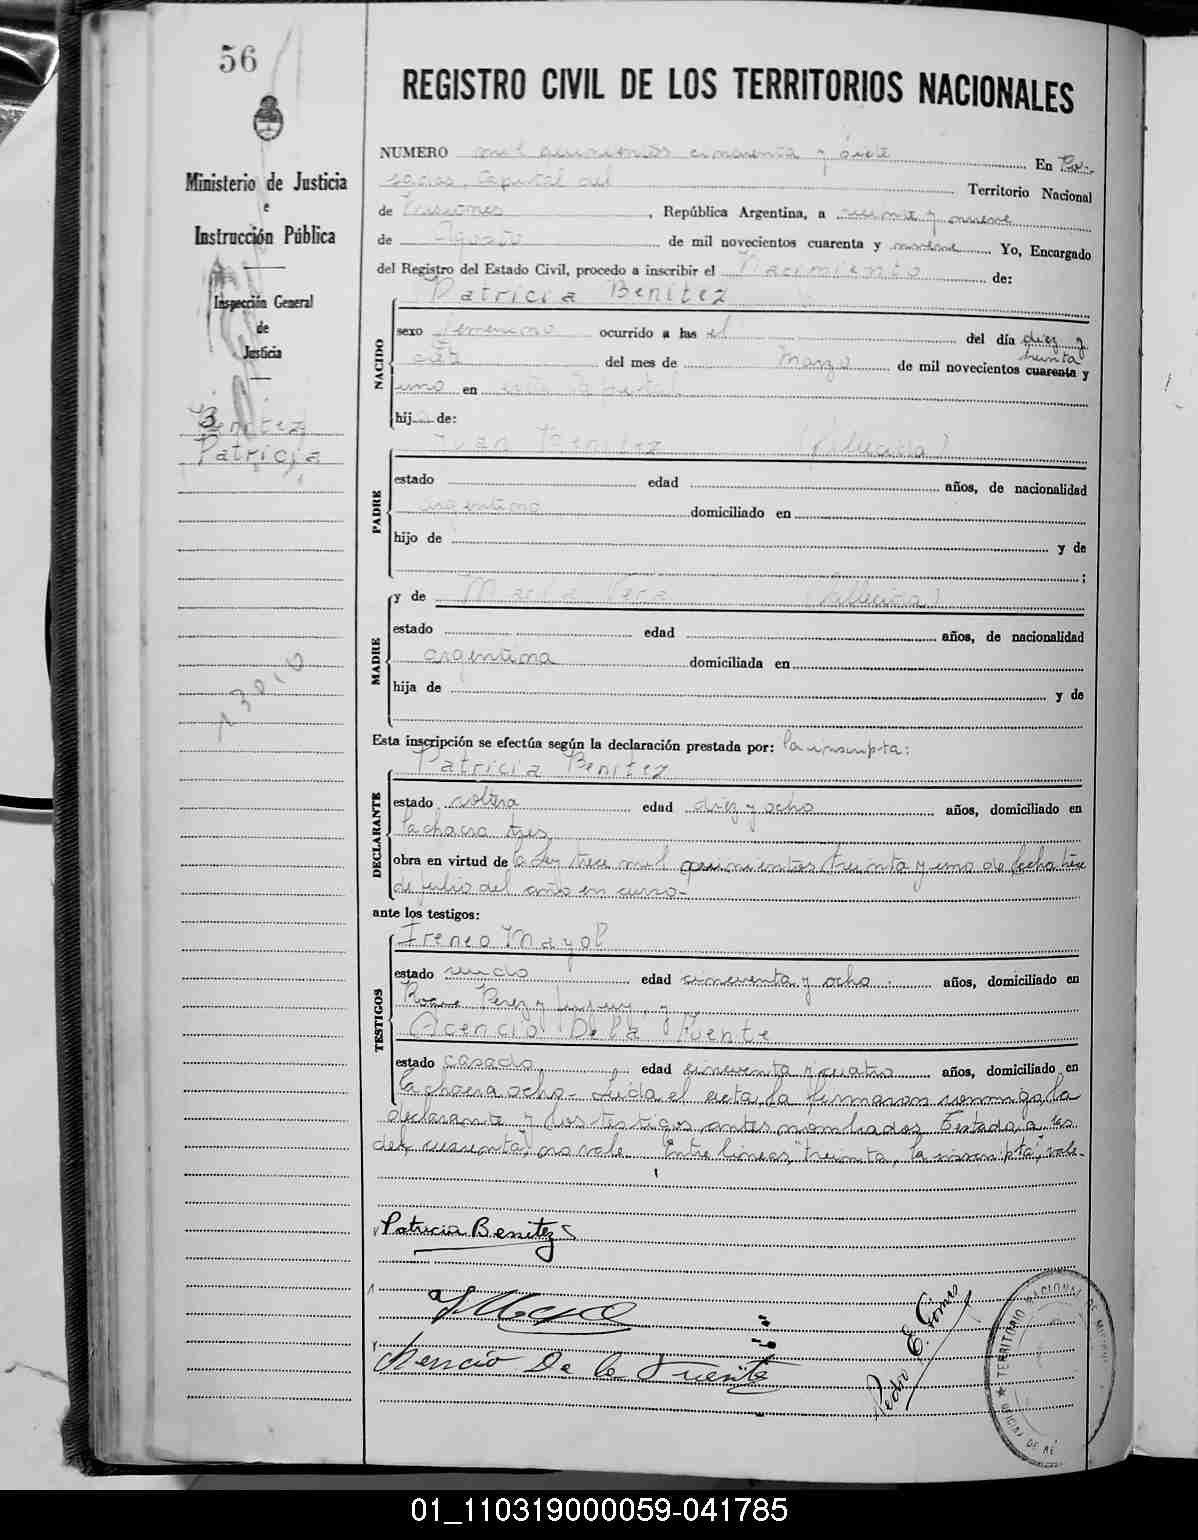 56
REGISTRO CIVIL DE LOS TERRITORIOS NACIONALES
Ministerio de Justicia
e
Instrucción Pública
Inspección General
de
Justicia
Benitez
Patricia
13010
NUMERO mil quinientos cincuenta y siete En Po-
sadas, Capital del Territorio Nacional
de Misiones, República Argentina, a veinte y nueve
de Agosto de mil novecientos cuarenta y nueve Yo, Encargado
del Registro del Estado Civil, procedo a inscribir el Nacimiento de:
NACIDO
Patricia Benitez
sexo femenino ocurrido a las el del día diez y
siete del mes de Marzo de mil novecientos cuarenta y
treinta
uno en esta Capital
hija de:
PADRE
Juan Benitez (fallecido)
estado edad años, de nacionalidad
argentino domiciliado en
hijo de y de
;
MADRE
y de María Vera (fallecida)
estado edad años, de nacionalidad
argentina domiciliada en
hija de y de
Esta inscripción se efectúa según la declaración prestada por: la inscripta:
DECLARANTE
Patricia Benitez
estado soltera edad diez y ocho años, domiciliado en
la chacra tres
obra en virtud de la ley trece mil quinientos treinta y uno de fecha trece
de julio del año en curso-
ante los testigos:
TESTIGOS
Ireneo Mayol
estado viudo edad cincuenta y ocho años, domiciliado en
Roque Perez y Jujuy, y
Acencio De la Fuente
estado casado edad cincuenta y cuatro años, domiciliado en
la chacra ocho- Leida el acta, la firmaron conmigo, la
declarante y los testigos antes nombrados. Testado, a las
del, cuarenta, no vale. Entre lineas, "treinta, la inscripta", vale-
Patricia Benitez
Acencio De la Fuente
Pedro E. Gomez
TERRITORIO NACIONAL DE
01_110319000059-041785